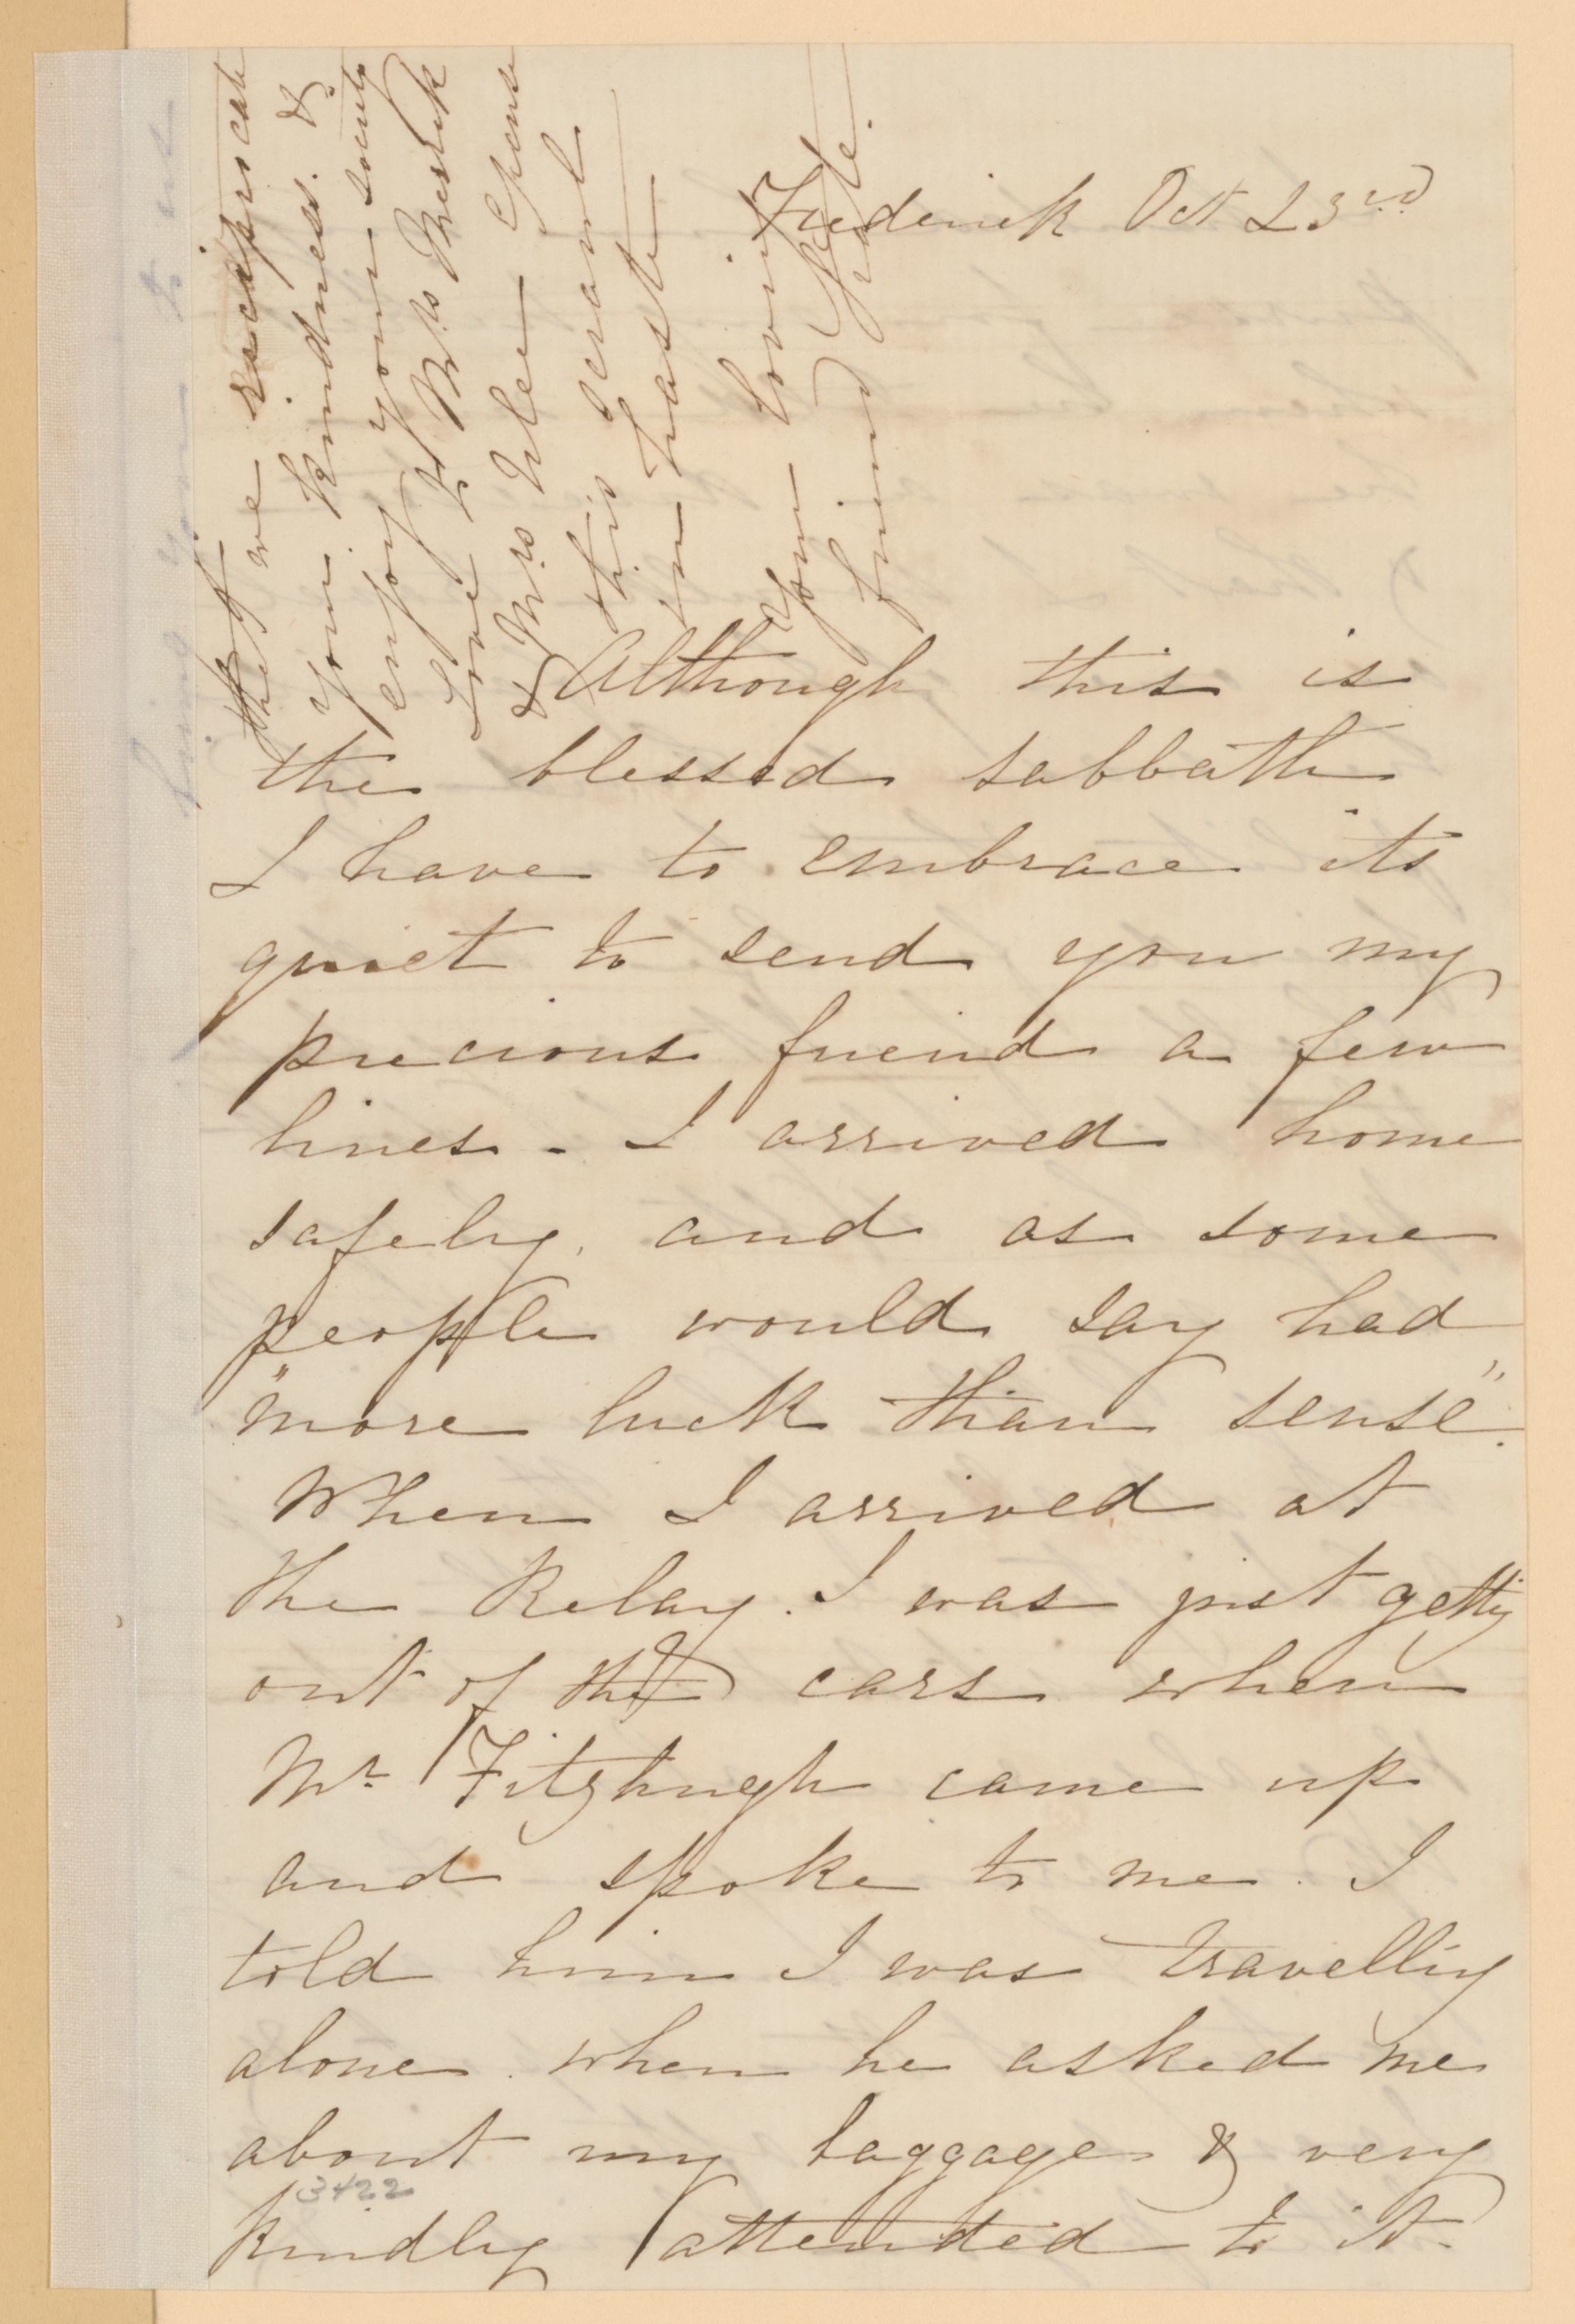 Frederick Oct 23rd
Although this is
the blessed sabbath
I have to embrace its
quiet to send you my
precious friend a few
lines - I arrived home
safely, and as some
people would say had
"more luck than sense".
When I arrived at
the Relay. I was just getty
out of the cars when
Mr Fitzhugh came up
and spoke to me. I
told him I was travellig
alone. when he asked me
about my baggage & very
kindly attended to it.
3422
that we reciprocate
your kindness. &
enjoy your society
Love to Mrs
& Mrs Excuse
this scrawl
in haste
Your loving
friend